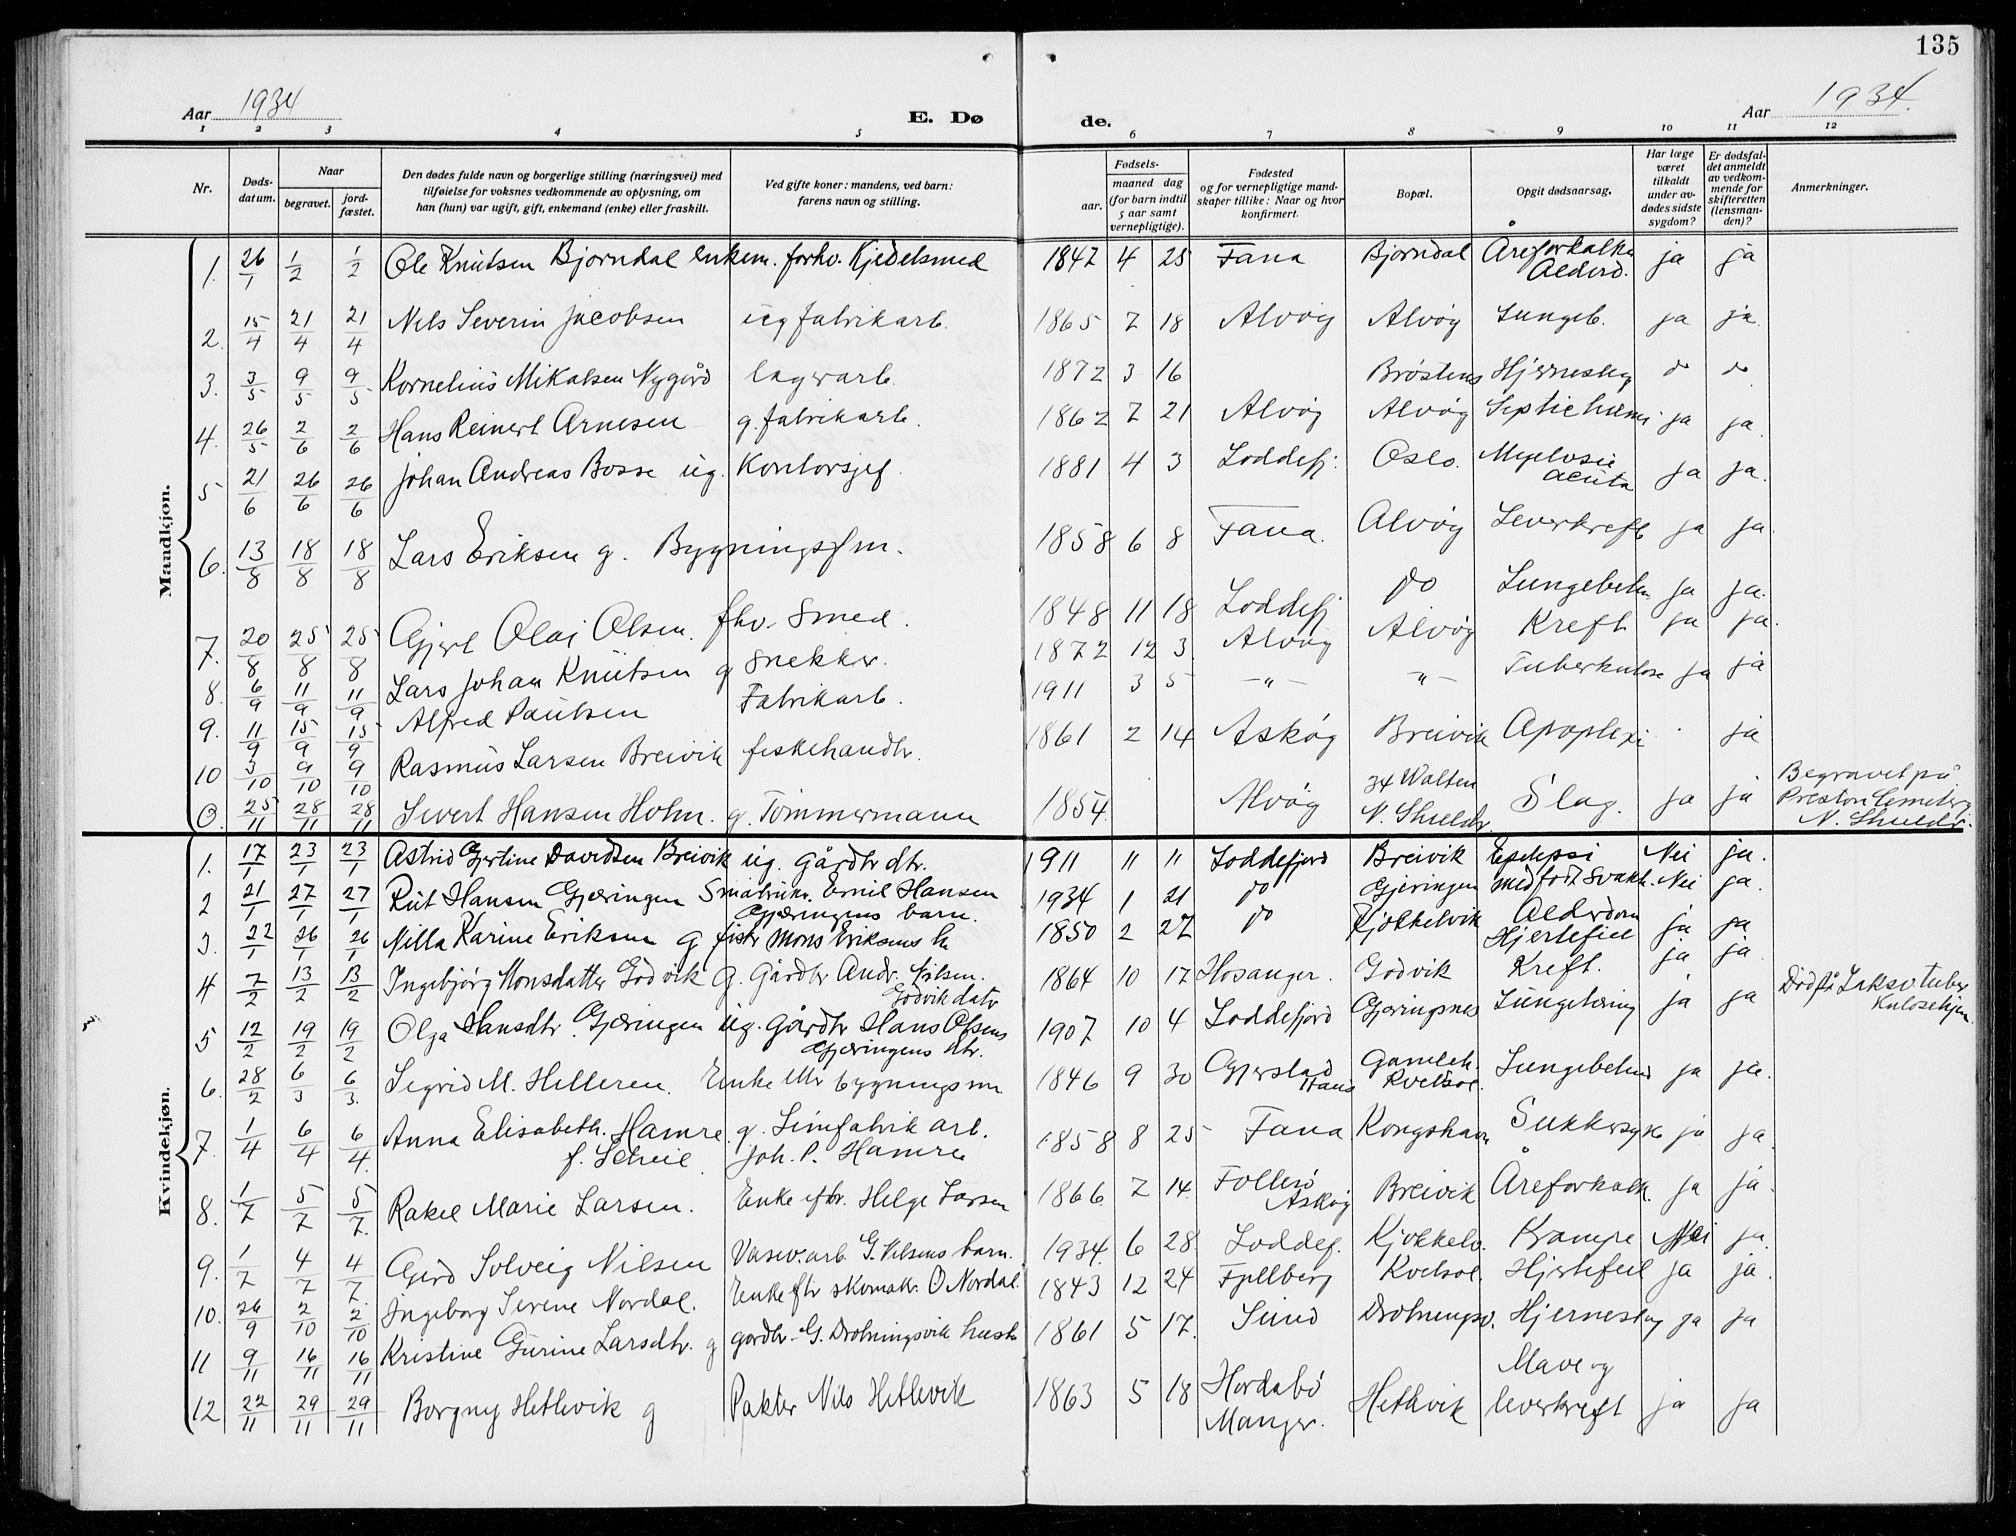 135
Aar 1934
E. Dø
de.
Aar 1934.
1 2 3 4 5 6 7 8 9 10 11 12
Nr.
Døds-
datum.
Naar
begravet.
jord-
fæstet.
Den dødes fulde navn og borgerlige stilling (næringsvei) med
tilføielse for voksnes vedkommende av oplysning, om
han (hun) var ugift, gift, enkemand (enke) eller fraskilt.
Ved gifte koner: mandens, ved barn:
farens navn og stilling.
Fødsels-
aar.
maaned dag
(for barn indtil
5 aar samt
vernepligtige).
Fødested
og for vernepligtige mand-
skaper tillike: Naar og hvor
konfirmert.
Bopæl.
Opgit dødsaarsag.
Har læge
været
tilkaldt
under av-
dødes sidste
sygdom?
Er dødsfal-
det anmeldt
av vedkom-
mende for
skifteretten
(lensman-
den)?
Anmerkninger.
Mandkjøn.
1. 26/1 1/2 1/2 Ole Knutsen Bjørndal enkem. forhv. Kjedelsmed 1847 4 25 Fana Bjørndal Åreforkalkn Alderd. ja ja
2. 15/4 21/4 21/4 Nils Severin Jacobsen ug fabrikarb. 1865 7 18 Alvøy Alvøy Lungeb. ja ja
3. 3/5 9/5 9/5 Kornelius Mikalsen Nygård lagerarb. 1872 3 16 Brøstens Hjerneslag do do
4. 26/5 2/6 2/6 Hans Reinert Arnesen g. fabrikarb. 1862 7 21 Alvøy Alvøy Septichæmi ja ja.
5 21/6 26/6 26/6 Johan Andreas Bosse ug. Kontorsjef. 1881 4 3 Loddefj. Oslo. Myelosie acuta ja ja.
6. 13/8 18/8 18/8 Lars Eriksen g. Bygningsfm. 1858 6 8 Fana. Alvøy Leverkreft ja ja.
7. 20/8 25/8 25/8 Gjert Olai Olsen. fhv. Smed. 1848 11 18 Loddefj do Lungebeten ja ja.
8. 6/9 11/9 11/9 Lars Johan Knutsen g Snekker. 1872 12 3. Alvøy Alvøy Kreft ja ja.
9. 11/9 15/9 15/9 Alfred Paulsen Fabrikarb. 1911 3 5 -"- -"- Tuberkulose ja ja
10 3/10 9/10 9/10 Rasmus Larsen Breivik fiskehandlr. 1861 2 14 Askøy Breivik Apoplexi ja
0. 25/11 28/11 28/11 Sivert Hansen Holm. g. Tømmermann 1854. Alvøy 34 Walten N. Shields. Slag. ja ja Begravet på
Preston Cemetery
N. Shields.
Kvindekjøn.
1. 17/1 23/1 23/1 Astrid Gjertine Davidsen Breivik ug. gårdbr dtr. 1911 " " Loddefjord Breivik Epelepsi Nei ja.
2 21/1 27/1 27/1 Rut Hansen Gjæringen Småbruker. Emil Hansen
Gjæringens barn. 1934 1 21 do Gjeringen medfødt svakh. Nei ja.
3. 22/1 26/1 26/1 Nilla Karine Eriksen g fiskr Mons Eriksens h 1850 2 27 do Kjøkkelvik Alderdom Hjertefeil ja ja
4 7/2 13/2 13/2 Ingebjørg Monsdatter Godvik g. Gårdbr Andr. Nilsen.
Godvik datr 1864 10 17 Hosanger. Godvik Kreft. ja ja
5 12/2 19/2 19/2 Olga Hansdtr. Gjæringen ug. gårdbr Hans Olsens
Gjæringens dtr. 1907 10 4 Loddefjord Gjeringsnes Lungetæring ja ja Død på Laksev tuber
kulosehjem.
6. 28/2 6/3 6/3. Sigrid M. Helleren. Enke eftr bygningsm 1846 9 30 Gjerstad Hans Gamleh. Kvelsol. Lungebeten ja ja.
7. 1/4 6/4 6/4. Anna Elisabeth. Hamre g. Limfabrik arb.
f. Scheie Joh. P. Hamre 1858 8 25 Fana Kongshavn Sukkersyke ja ja.
8. 1/7 5/7 5/7. Rakel Marie Larsen. Enke eftr. Helge Larsen 1866 7 14. Follesø Askøy Breivik Åreforkalk. ja ja.
9. 1/7 4/7 4/7. Gerd Solveig Nilsen Vasev.arb. G. Nilsens barn. 1934. 6 28. Loddef. Kjøkkelv. Krampe Nei ja.
10. 26/9 2/10 2/10 Ingeborg Serene Nordal. Enke eftr skomakr. O Nordal. 1843 12 24 Fjellberg Kvelsol. Hjertefeil ja ja.
11 9/11 16/11 16/11 Kristine Gurine Larsdtr. g gardbr. G. Drotningsvik hustr 1861 5 17. Sund Drotningsv. Hjerneslag ja ja
12 22/11 29/11 29/11 Borgny Hetlevik g Pakter Nils Hetlevik 1863 5 18 Hordabø
Manger. Hetlevik Mave og
leverkreft ja ja